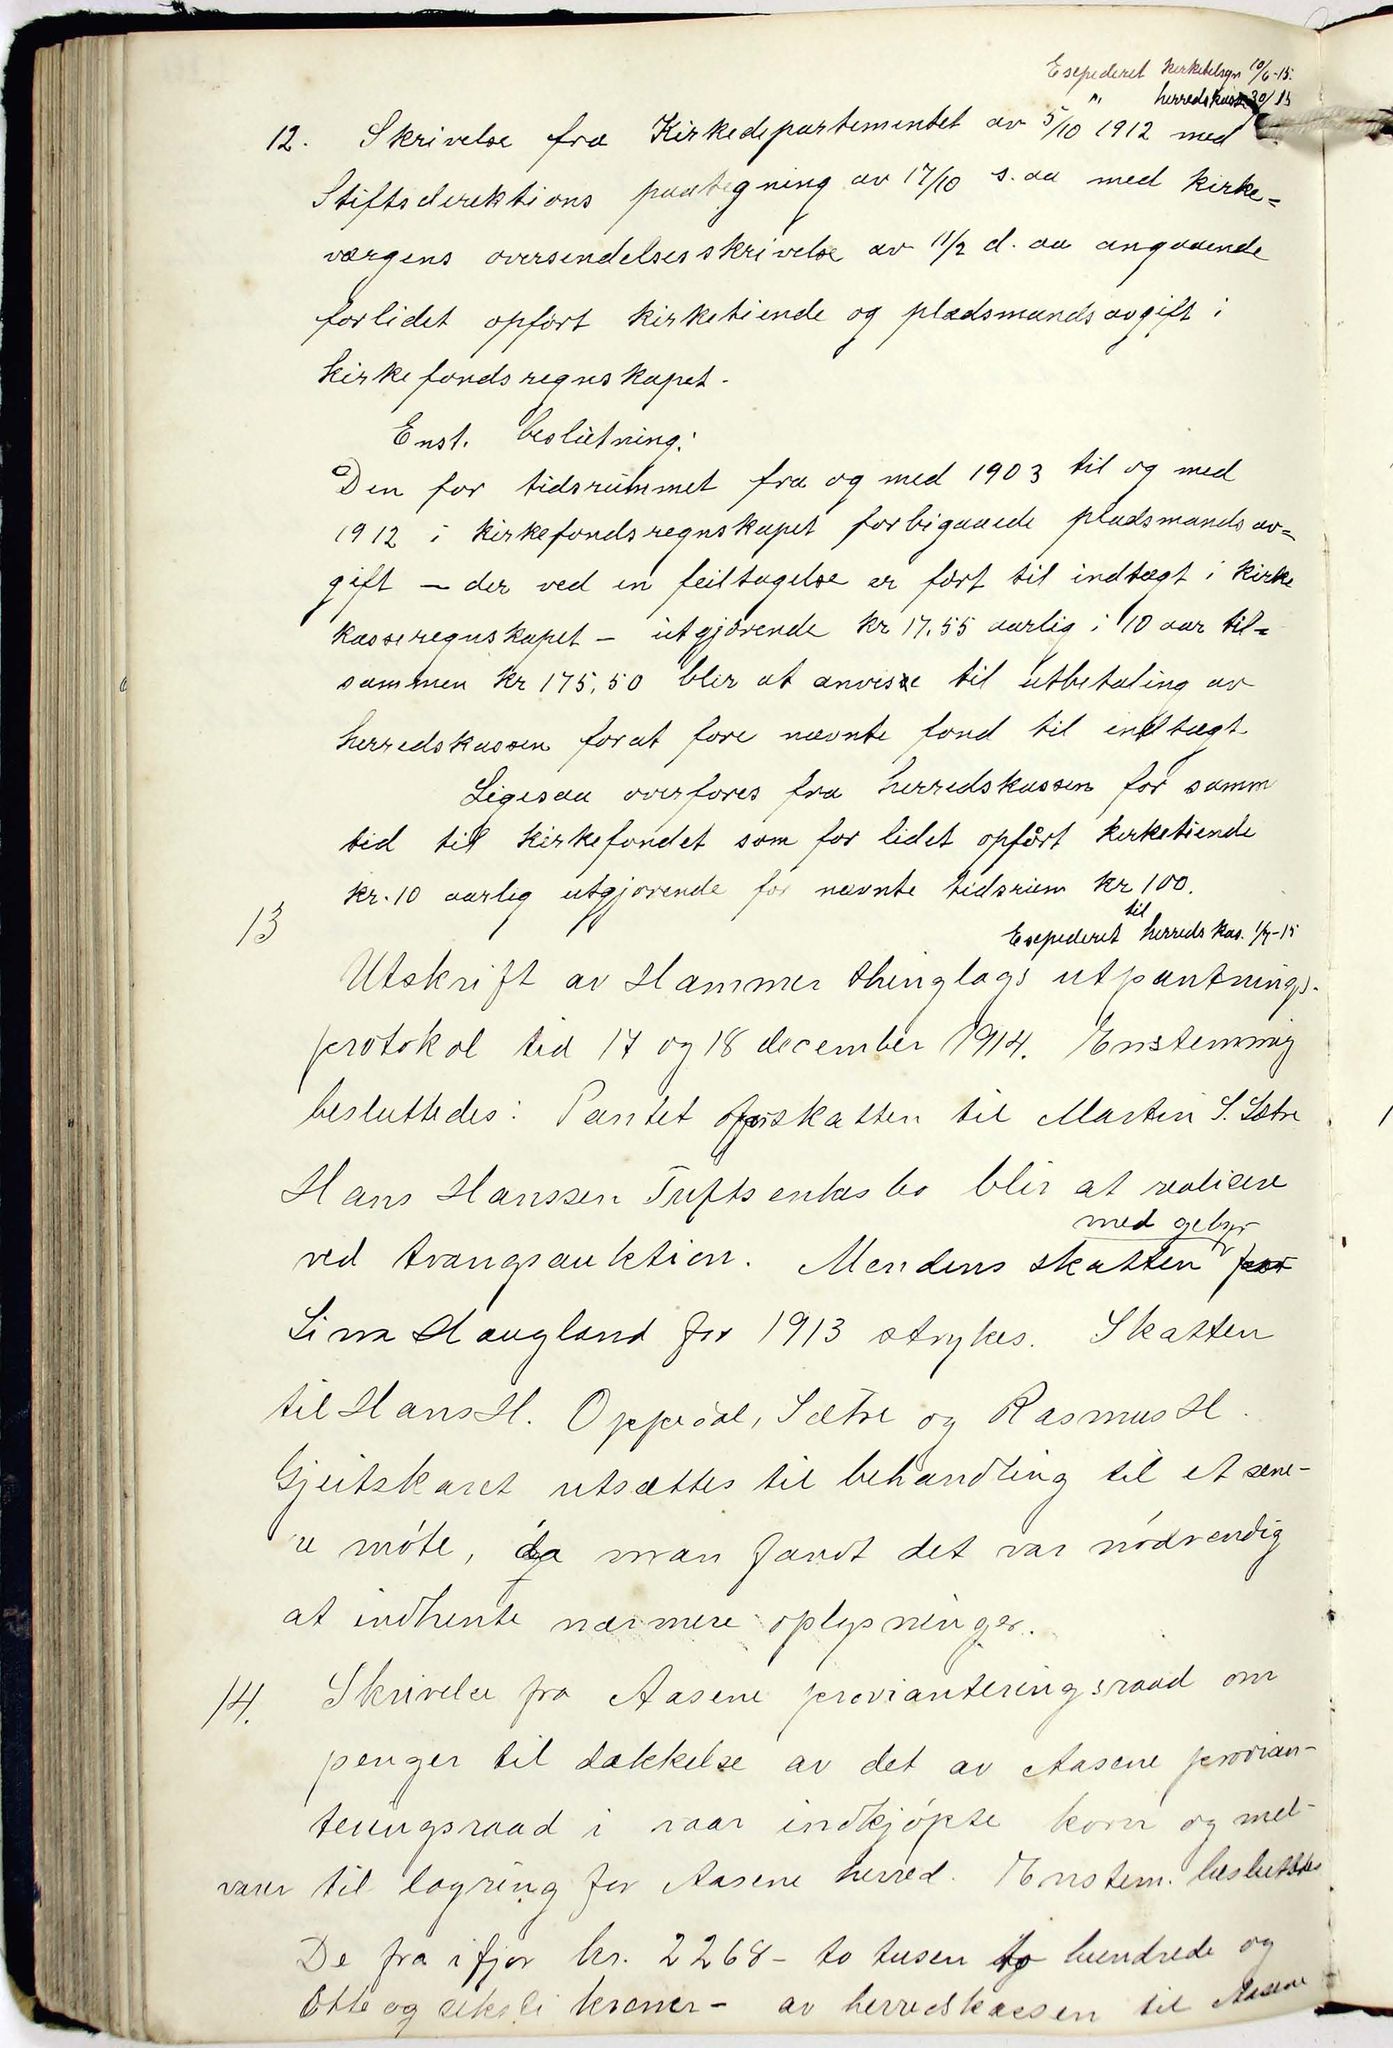 Expederet kirketilsyn 10/6-15.
" herredskasse 30/ 15
12. Skrivelse fra Kirkedepartementet av 5/10 1912 med
Stiftsdirektions paategning av 17/10 s. aa med kirke=
værgens oversendelsesskrivelse av 11/2 d. aa angaaende
forlidet opført kirketiende og pladsmandsavgift i
kirkefondsregnskapet.
Enst. beslutning:
Den for tidsrummet fra og med 1903 til og med
1912 i kirkefondsregnskapet forbigaaede pladsmandsav=
gift – der ved en feiltagelse er ført til indtægt i kirke
kasseregnskapet – utgjørende kr 17,55 aarlig i 10 aar til=
sammen kr 175,50 blir at anvise til utbetaling av
herredskassen forat føre nævnte fond til indtægt
Ligesaa overføres fra herredskassen for samm
tid til kirkefondet som for lidet opført kirketiende
kr. 10 aarlig utgjørende for nævnte tidsrum kr 100.
Expederet til herredskas. 1/7-15
13
Utskrift av Hammer thinglags utpantnings-
protokol tid 17 og 18 december 1914. Enstemmig
besluttedes: Pantet for skatten til Martin S. Sætre
Hans Hanssen Tufts enkes bo blir at realisere
ved tvangsauktion. Mendens skatten med gebyr
Lina Haugland for 1913 strykes. Skatten
til Hans H. Opperdal, Sætre og Rasmus H.
Gjeitskaret utsættes til behandling til et sene-
re møte, da man fandt det var nødvendig
at indhente nærmere oplysninger.
14. Skrivelse fra Aasene provianteringsraad om
penger til dækkelse av det av Aasene provian-
teringsraad i vaar indkjøpte korn og mel-
varer til lagring for Aasene herred. Enstem. besluttedes
De fra ifjor kr. 2268 – to tusen to hundrede og
Otte og seksti kroner – av herredskassen til Aasene